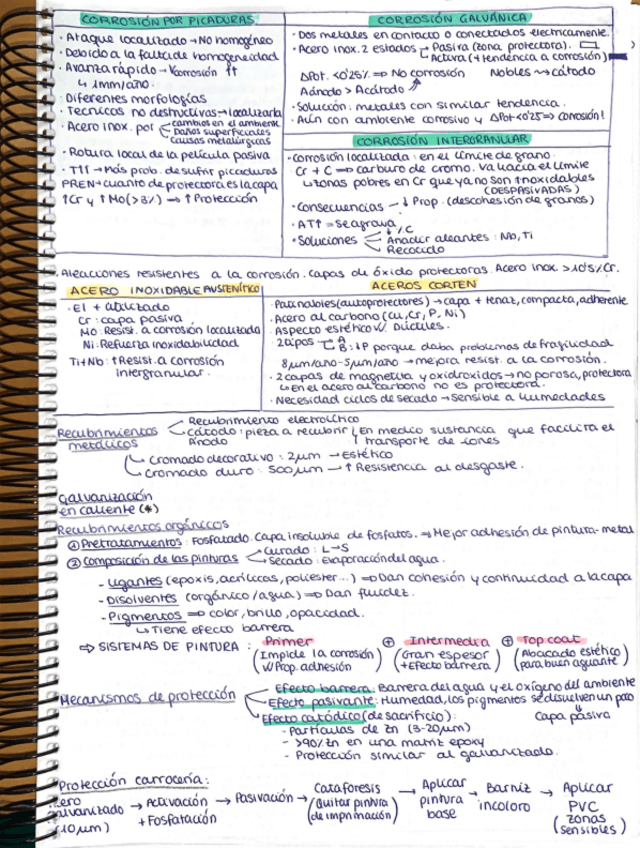 CORROSIÓN POR PICADURAS
· Ataque localizado → No homogéneo
· Debido a la falta de homogeneidad
· Avanza rápido → Vcorrosión ↑↑
↳ 1mm/año.
· Diferentes morfologías
· Tecnicas no destructivas → localizarla
· Acero inox. por cambios en el ambiente
Daños superficiales
causas metalúrgicas
· Rotura local de la película pasiva
· T↑↑ → Más prob. de sufrir picaduras
PREN → cuanto de protectora es la capa
↑Cr y ↑Mo (>3%) → ↑ Protección
CORROSIÓN GALVÁNICA
· Dos metales en contacto o conectados electricamente.
· Acero inox. 2 estados Pasiva (zona protectora).
Activa (+ tendencia a corrosión)
ΔPot. <0'25% ⇒ No corrosión Nobles ⇝ cátodo
Aánodo > Acátodo
· Solución: metales con similar tendencia.
· Aún con ambiente corrosivo y ΔPot<0'25 ⇒ corrosión!
CORROSIÓN INTERGRANULAR
· Corrosión localizada: en el límite de grano.
Cr + C ⇒ carburo de cromo. Va hacia el límite
↳ zonas pobres en Cr que ya no son inoxidables
(DESPASIVADAS)
· Consecuencias → ↓ Prop. (descohesión de granos)
· AT↑ = se agrava
· Soluciones ↓%C
Añadir aleantes: Nb, Ti
Recocido
Aleaciones resistentes a la corrosión. Capas de óxido protectoras. Acero inox. >10'5% Cr.
ACERO INOXIDABLE AUSTENÍTICO
· El + utilizado
Cr: capa pasiva
Mo: Resist. a corrosión localizada
Ni: Refuerza inoxidabilidad
Ti+Nb: ↑Resist. a corrosión
intergranular.
ACEROS CORTEN
· Patinables (autoprotectores) → capa + tenaz, compacta, adherente
· Acero al carbono (Cu, Cr, P, Ni)
· Aspecto estético W. Dúctiles.
· 2 tipos A
B: ↓P porque daba problemas de fragilidad
8µm/año - 5µm/año → mejora resist. a la corrosión.
· 2 capas de magnetita y oxidróxidos → no porosa, protectora
↳ En el acero al carbono no es protectora.
· Necesidad ciclos de secado → Sensible a humedades
Recubrimientos metálicos
Recubrimiento electrolítico
cátodo: pieza a recubrir
Ánodo
En medio sustancia que facilita el
transporte de iones
↳ Cromado decorativo: 2µm → Estético
↳ Cromado duro: 500µm → ↑ Resistencia al desgaste.
Galvanización
en caliente (*)
Recubrimientos orgánicos
① Pretratamientos: Fosfatado. Capa insoluble de fosfatos. ⇒ Mejor adhesión de pintura-metal
② Composición de las pinturas Curado: L→S
Secado: Evaporación del agua.
- Ligantes (epoxis, acrílicas, poliester...) ⇒ Dan cohesión y continuidad a la capa
- Disolventes (orgánico/agua) ⇒ Dan fluidez.
- Pigmentos ⇒ color, brillo, opacidad.
↳ Tiene efecto barrera
⇒ SISTEMAS DE PINTURA: Primer ⊕ Intermedia ⊕ Top coat
(Impide la corrosión W Prop. adhesión) (Gran espesor + Efecto barrera) (Abacado estético para buen aguante)
Mecanismos de protección
Efecto barrera: Barrera del agua y el oxígeno del ambiente
Efecto pasivante: Humedad, los pigmentos se disuelven un poco
Capa pasiva
Efecto catódico (de sacrificio):
- Partículas de Zn (3-20µm)
- >90% Zn en una matriz epoxy
- Protección similar al galvanizado.
Protección carrocería:
ero
alvanizado → Activación + Fosfatación → Pasivación → Cataforesis (Quitar pintura de imprimación) → Aplicar pintura base → Barniz incoloro → Aplicar PVC (zonas sensibles)
10µm)